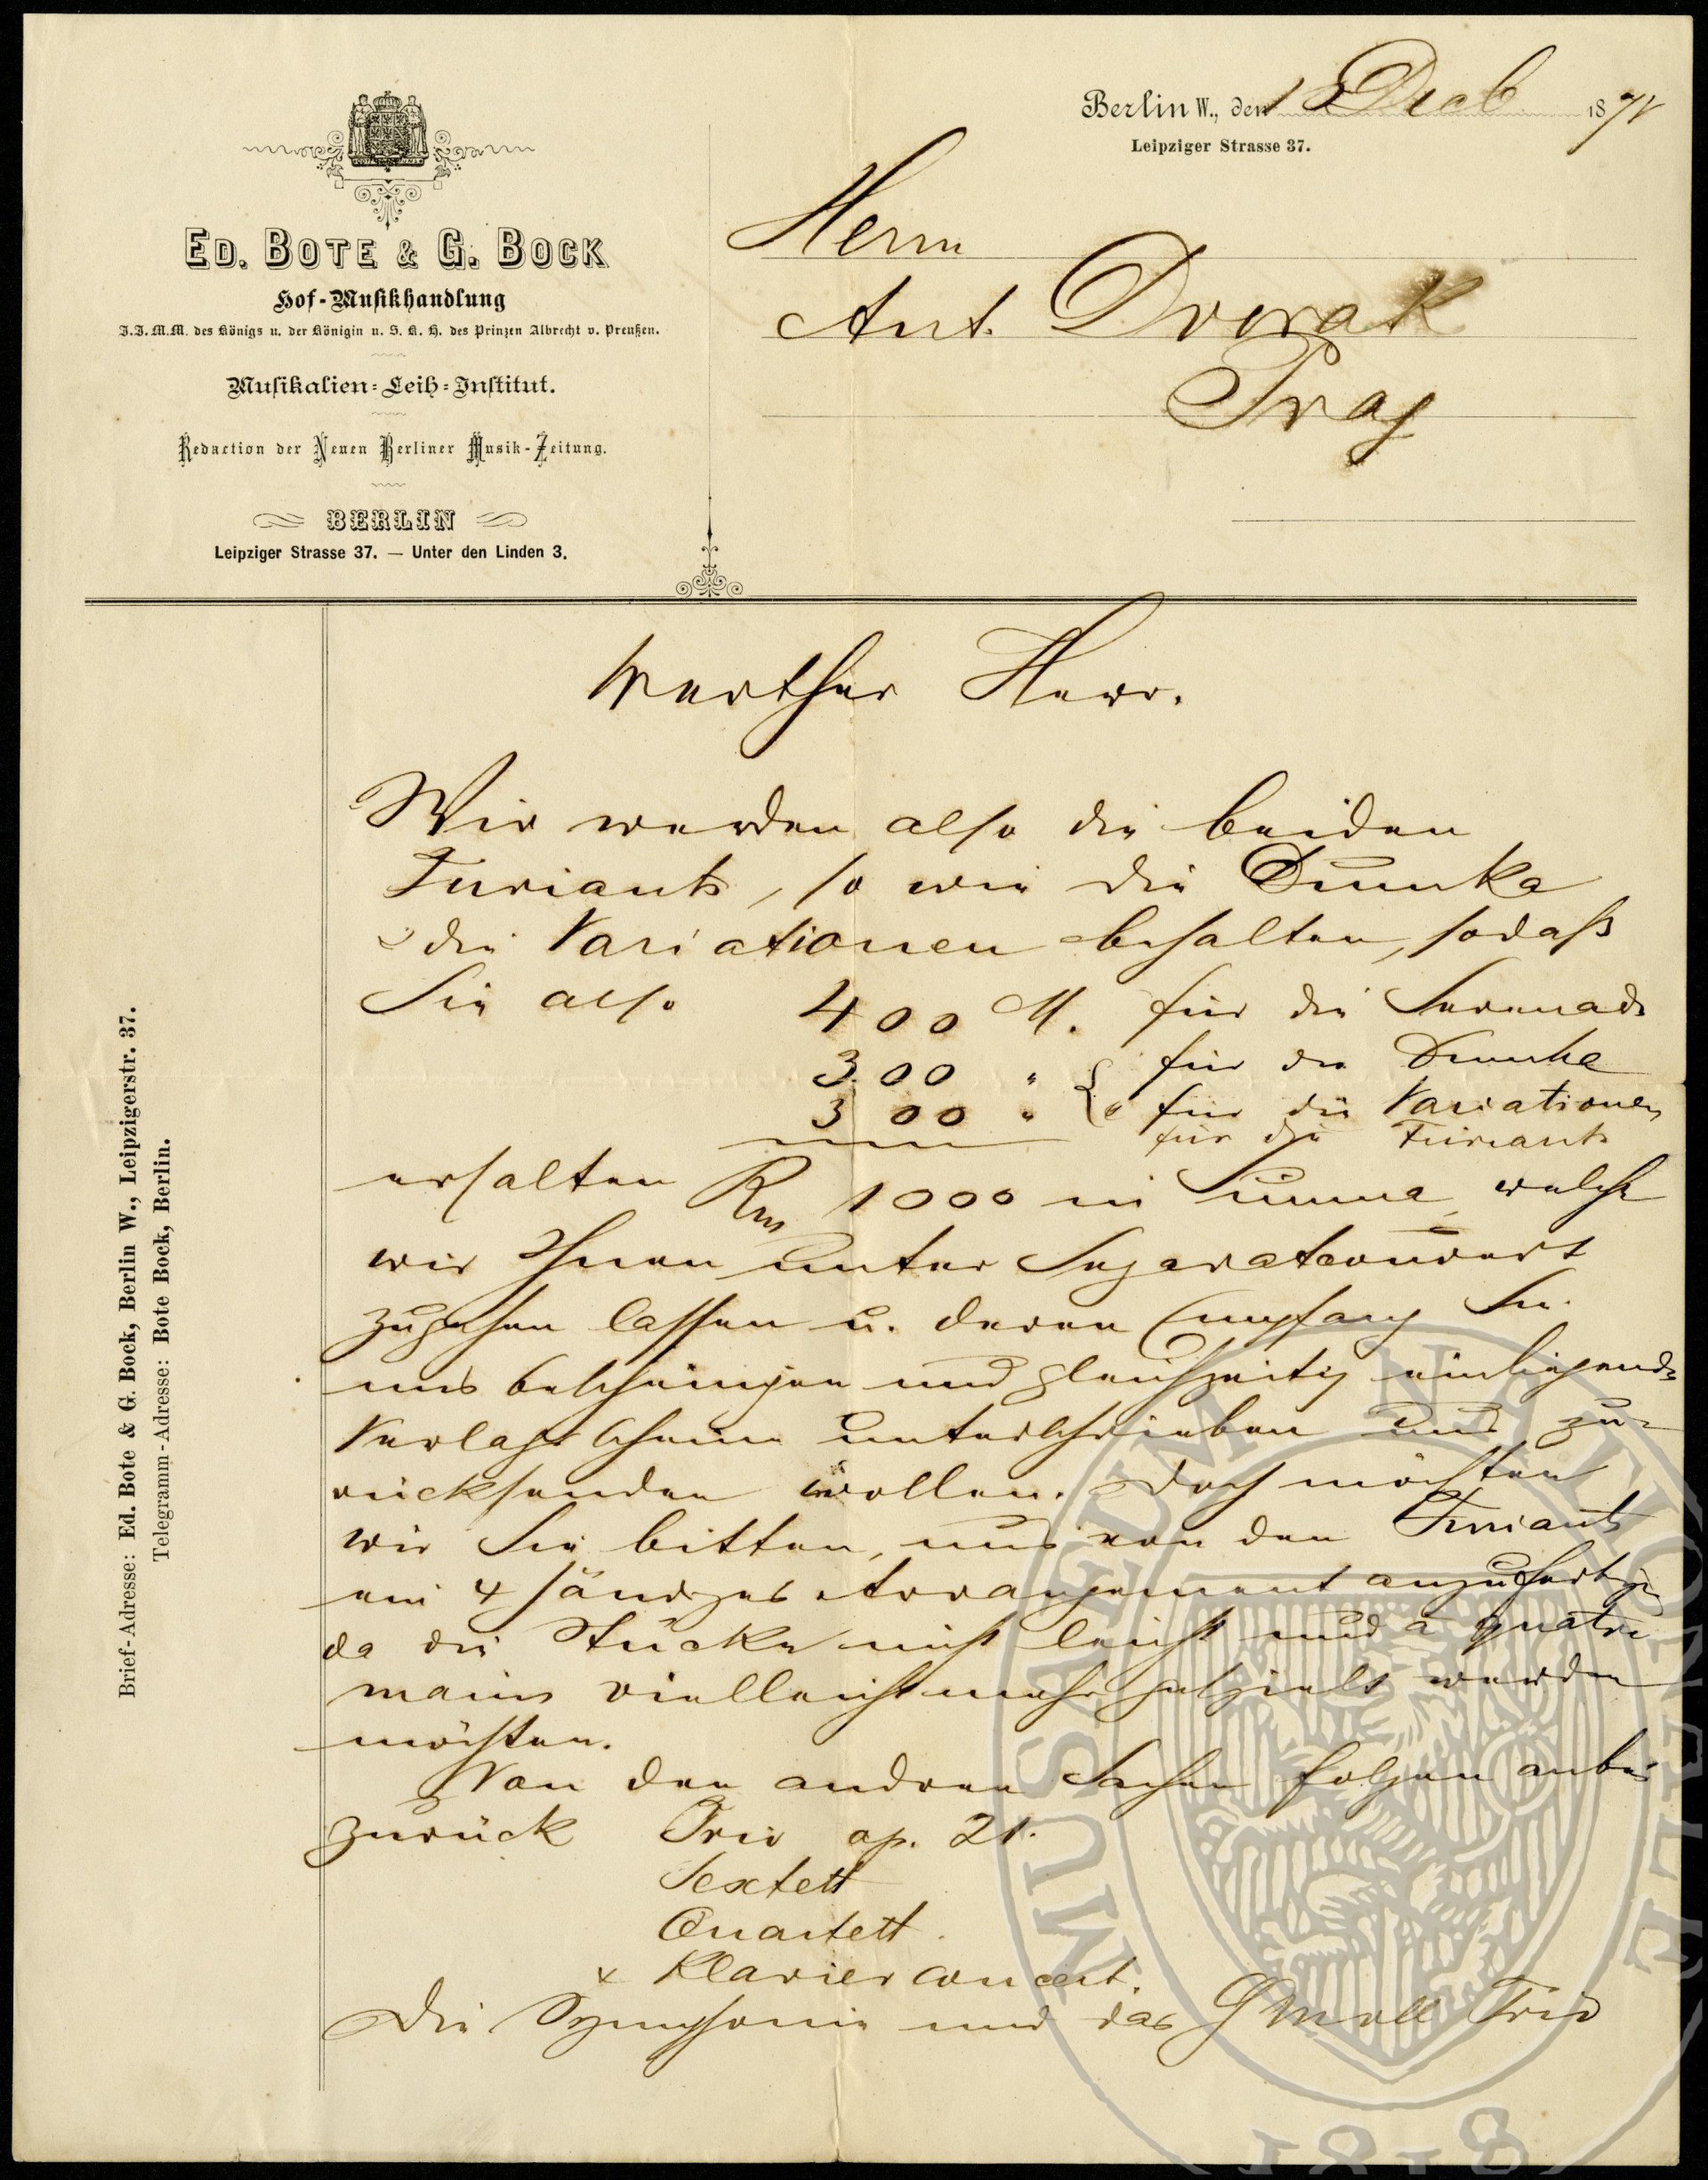 Berlin W., den 1878
Leipziger Strasse 37.
ED. BOTE & G. BOCK
Hof-Musikhandlung
J.J.M.M. des Königs u. der Königin u. S. K. H. des Prinzen Albrecht v. Preußen.
Musikalien-Leih-Institut.
Redaction der Neuen Berliner Musik-Zeitung.
BERLIN
Leipziger Strasse 37. — Unter den Linden 3.
Herrn
Ant. Dvorak
Prag
Brief-Adresse: Ed. Bote & G. Bock, Berlin W., Leipzigerstr. 37.
Telegramm-Adresse: Bote Bock, Berlin.
Werther Herr.
Wir werden also die beiden
Furiants, so wie die Dumka
& die Variationen behalten, sodaß
Sie also 400 M. für die Serenade
300 " für die Dumka
300 " für die Variationen
für die Furiants
erhalten Rm 1000 in Summa, welche
wir Ihnen unter Separatcouvert
zugehen lassen u. deren Empfang Sie
uns bescheinigen und gleichzeitig einliegende
Verlagsscheine unterschrieben uns zu-
rücksenden wollen. Doch möchten
wir Sie bitten, uns von den Furiants
ein 4 händiges Arrangement anzufertigen
da die Stücke nicht leicht und à quatre
mains vielleicht mehr gespielt werden
möchten.
Von den andren Sachen folgen anbei
zurück Trio op. 21.
Sextett
Quartett.
x Klavierconcert.
Die Symphonie und das G moll Trio
MUSAEUM NATIONALE
1818